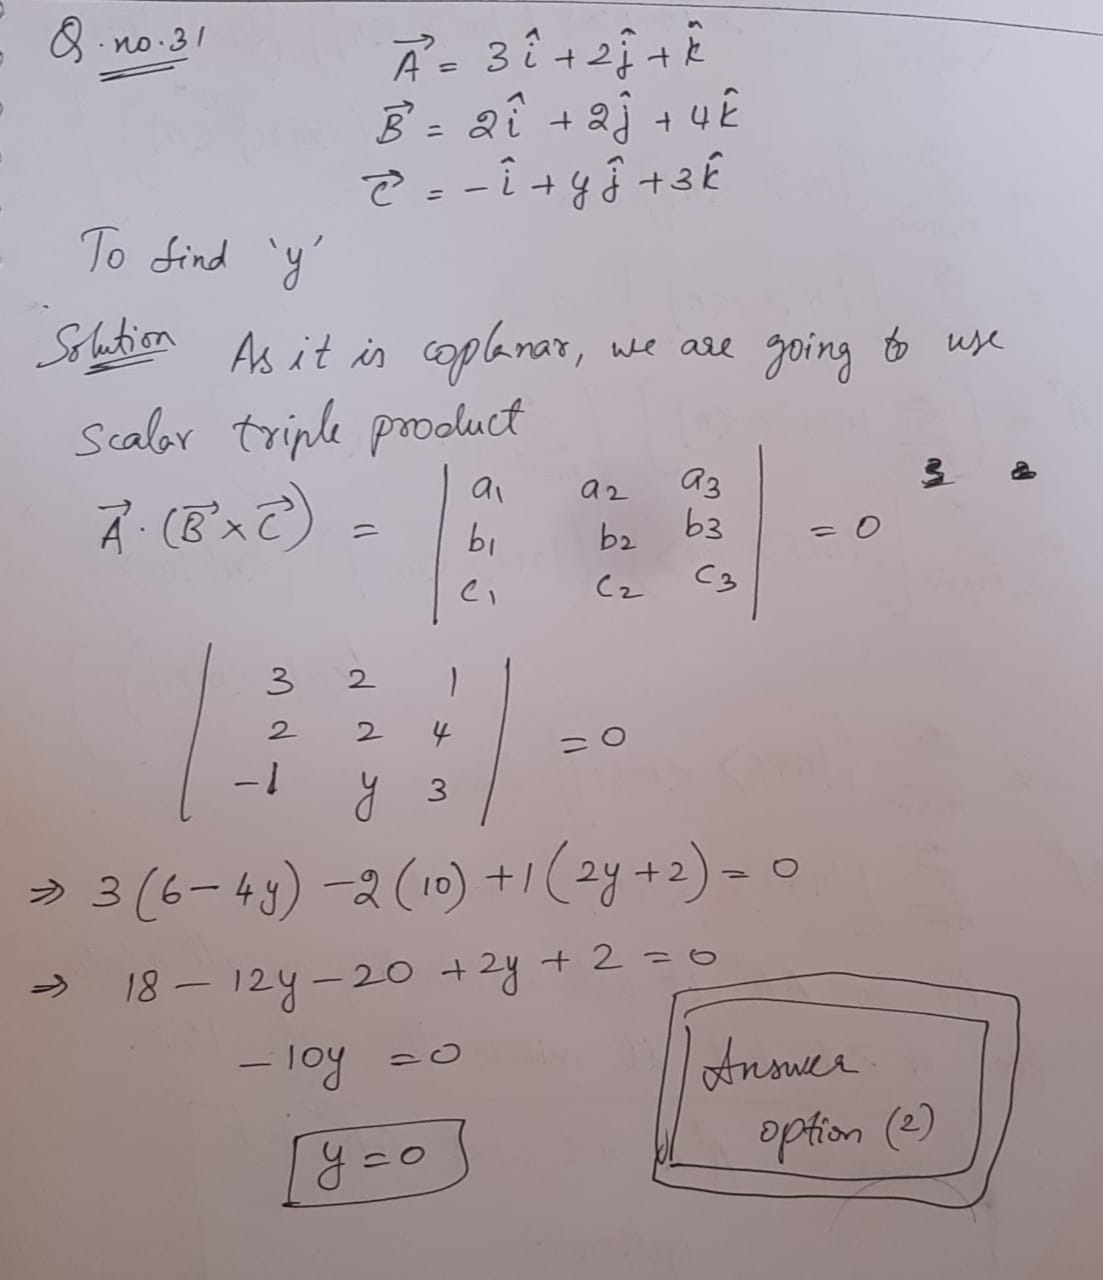 Q.no.31
A⃗ = 3î + 2ĵ + k̂
B⃗ = 2î + 2ĵ + 4k̂
C⃗ = -î + yĵ + 3k̂
To find 'y'
Solution As it is coplanar, we are going to use
scalar triple product
A⃗ · (B⃗ × C⃗) = | a1 a2 a3 |
| b1 b2 b3 | = 0
| c1 c2 c3 |
| 3 2 1 |
| 2 2 4 | = 0
| -1 y 3 |
⇒ 3(6-4y) -2(10) +1(2y+2) = 0
⇒ 18 - 12y - 20 + 2y + 2 = 0
-10y = 0
y = 0
Answer
option (2)